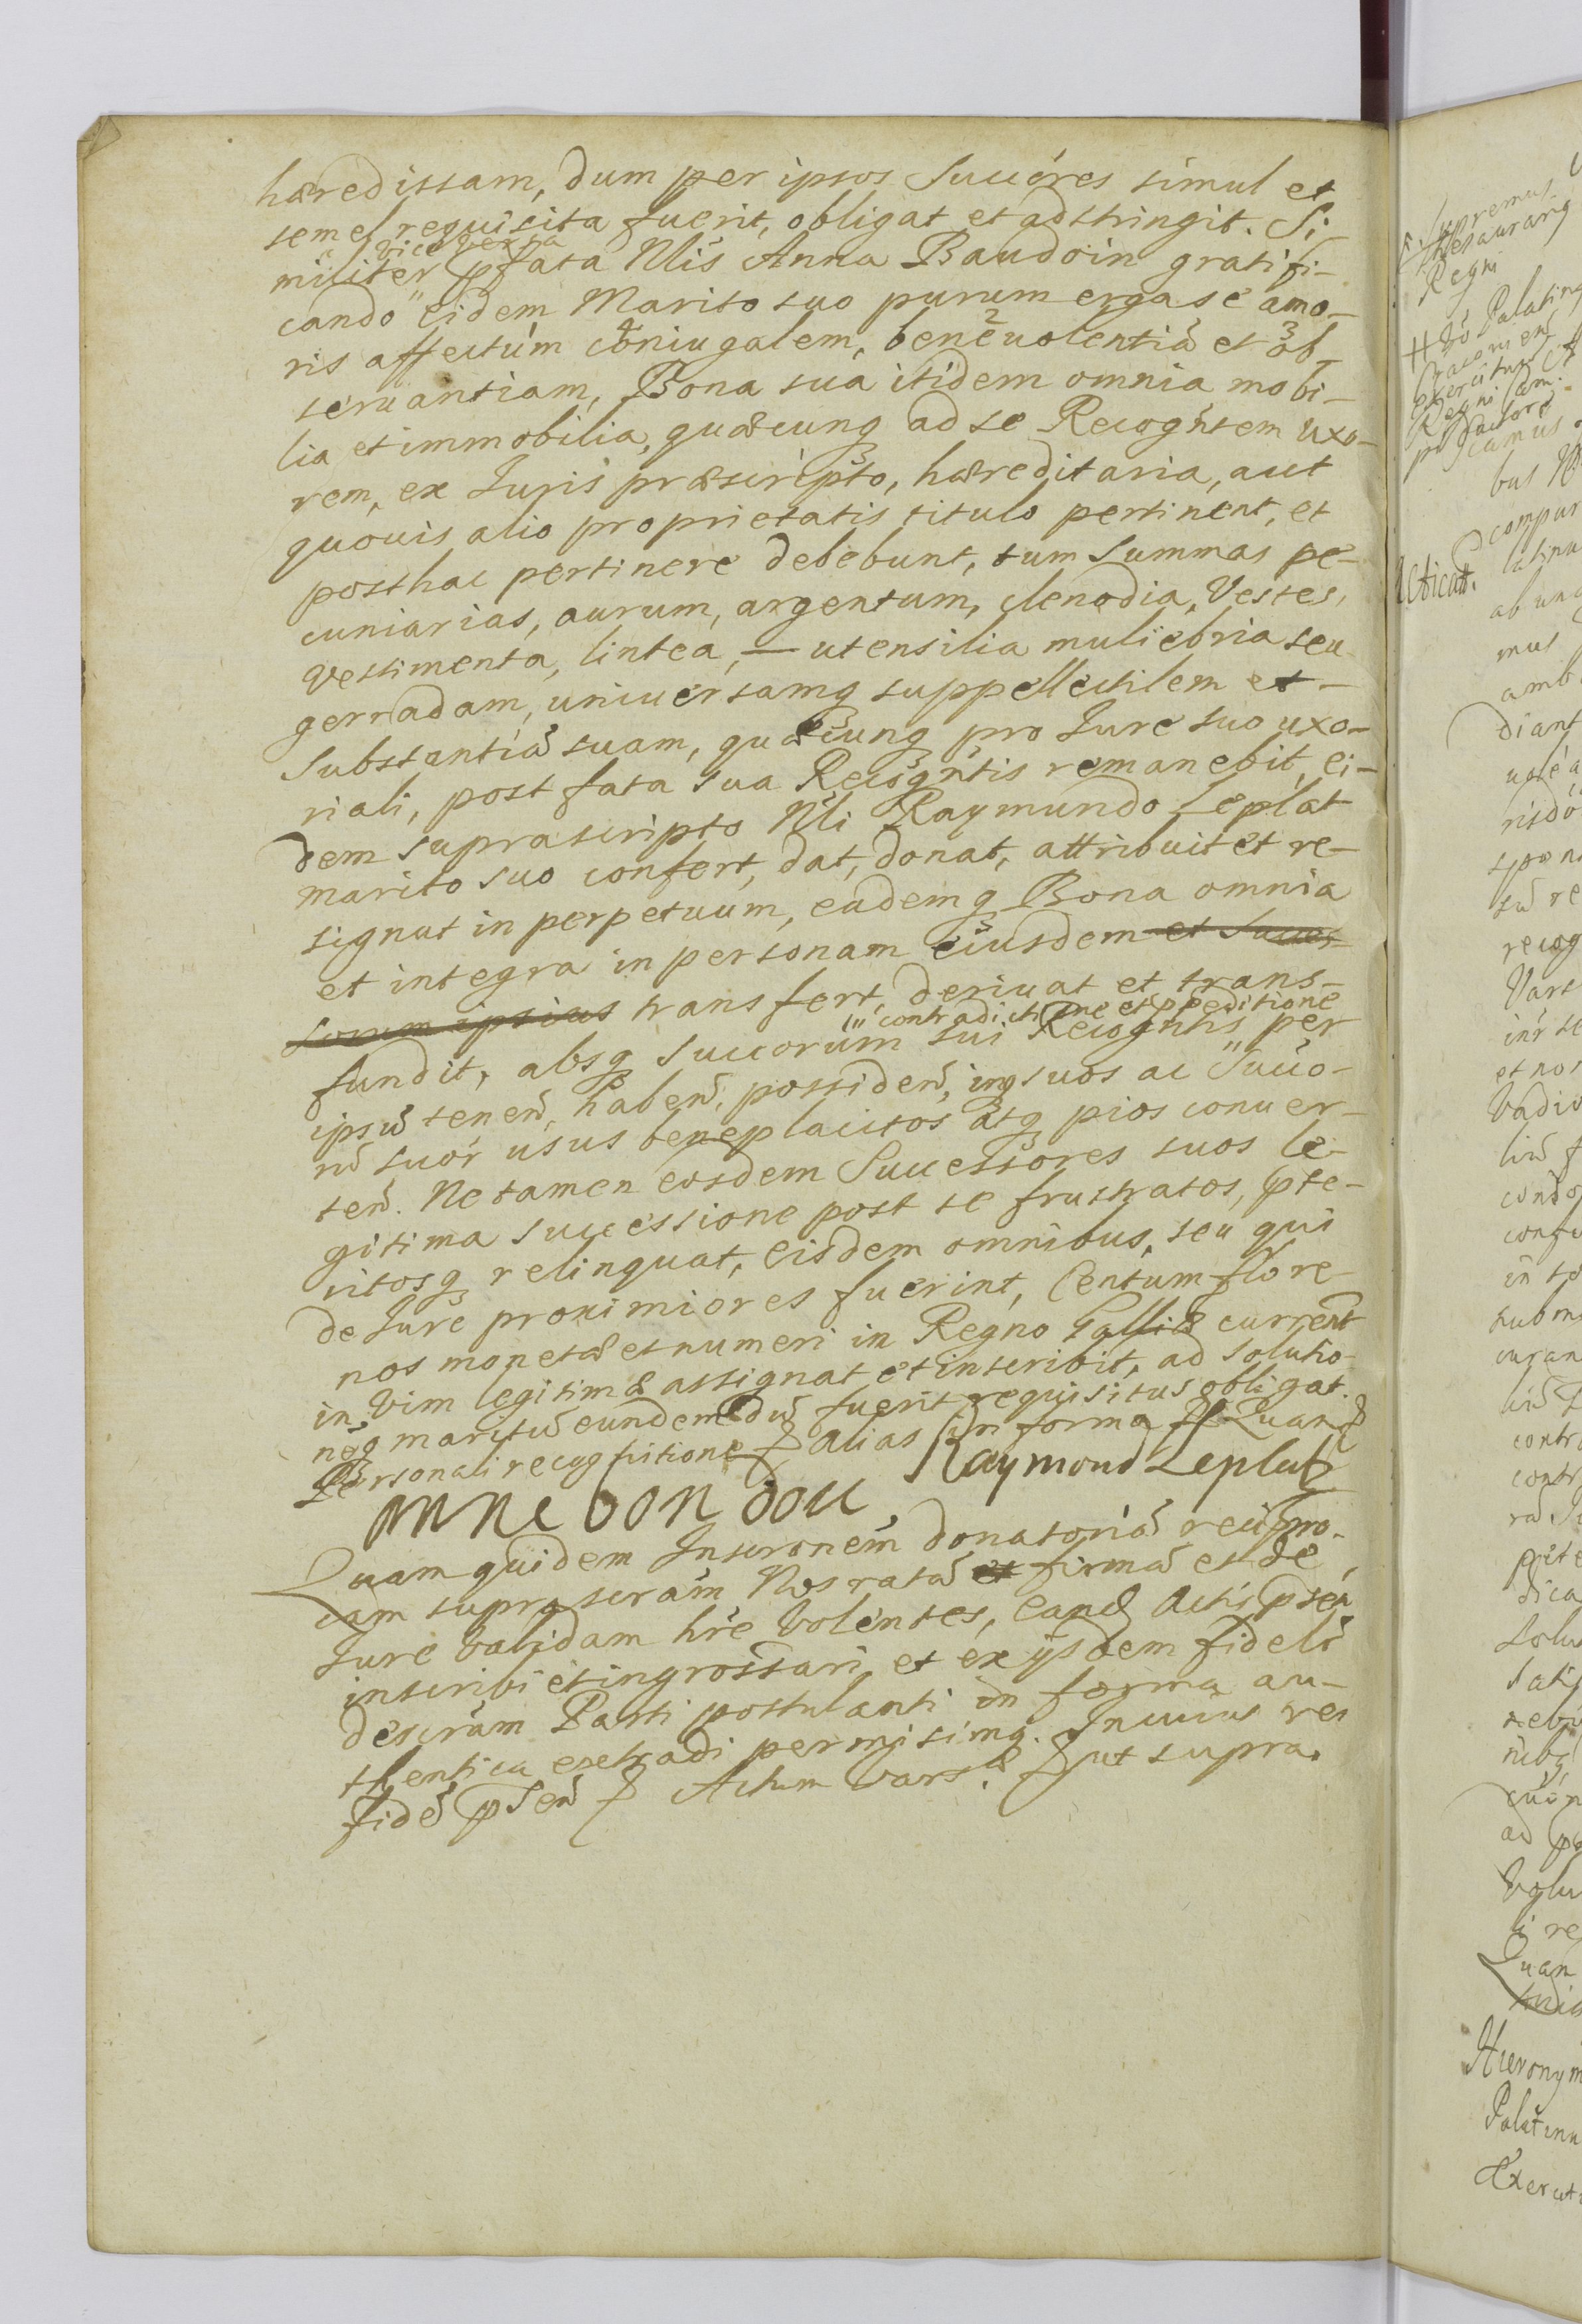 hæredissam, dum per ipsos Succóres simul et
semel requisita fuerit, obligat et adstringit. Si-
vice versa
militer pfata Nlis Anna Baudoin gratifi-
cando eidem Marito suo purum erga se amo-
ris affectum coniugalem, beneuolentiã et ob-
seruantiam, Bona sua itidem omnia mobi-
lia et immobilia, quæcunq ad se Recogntem uxo-
rem, ex Iuris præscripto, hæreditaria, aut
quouis alio proprietatis titulo pertinent, et
posthac pertinere debebunt, tum Summas pe-
cuniarias, aurum, argentum, clenodia, Vestes,
vestimenta, lintea, — utensilia muliebria seu
gerradam, uniuersamq suppellectilem et -
Substantiã suam, quæcunq pro Iure suo uxo-
riali, post fata sua Recogntis remanebit, ei-
dem suprascripto Nli Raymundo Leplat
marito suo confert, dat, donat, attribuit et re-
signat in perpetuum, eademq Bona omnia
et integra in personam eiusdem et Succes-
sorum ipsius transfert, deriuat et trans-
contradictione et ppeditione
fundit, absq Succorum sui Recogntis per
ipsũ tenen̄, haben̄, possiden̄, inq suos ac Succo-
rũ suor̄ usus beneplacitos atq pios conuer-
ten̄. Ne tamen eosdem Successores suos le-
gitima successione post se frustratos, pte-
ritosq relinquat, eisdem omnibus, seu qui
de Iure proximiores fuerint, Centum flore-
nos monetæ et numeri in Regno Galliæ current
in vim legitimæ assignat et inscribit, ad solutio-
nẽq maritũ eundem dũ fuerit requisitus obligat.
Personali recognitione alias in forma
Raymond Leplat
anne bon dou
Quam quidem Inscronem donatoriã recipro-
cam suprascram Nos ratã et firmã et de
Iure validam hre volentes, eand Actis psen
inscribi et ingrossari, et ex ijsdem fideli
descram Parti postulanti in forma au-
thentica extradi permisimq. In cuius rei
fidẽ psen Actum Varsæ ut supra.
Supremus
Thesaurariq
Regni
Palatinq
Regni
bus
compar
latinu
Acticatt.
ab una
mus
amb
diant
risdo
spon
sũ re
recog
Vars
et nos
Vadio
condo
in to
subm
curan
contro
contr
dica
Solu
Satis
ad
Volu
Quan
Hieronym
Palatinu
Exercit